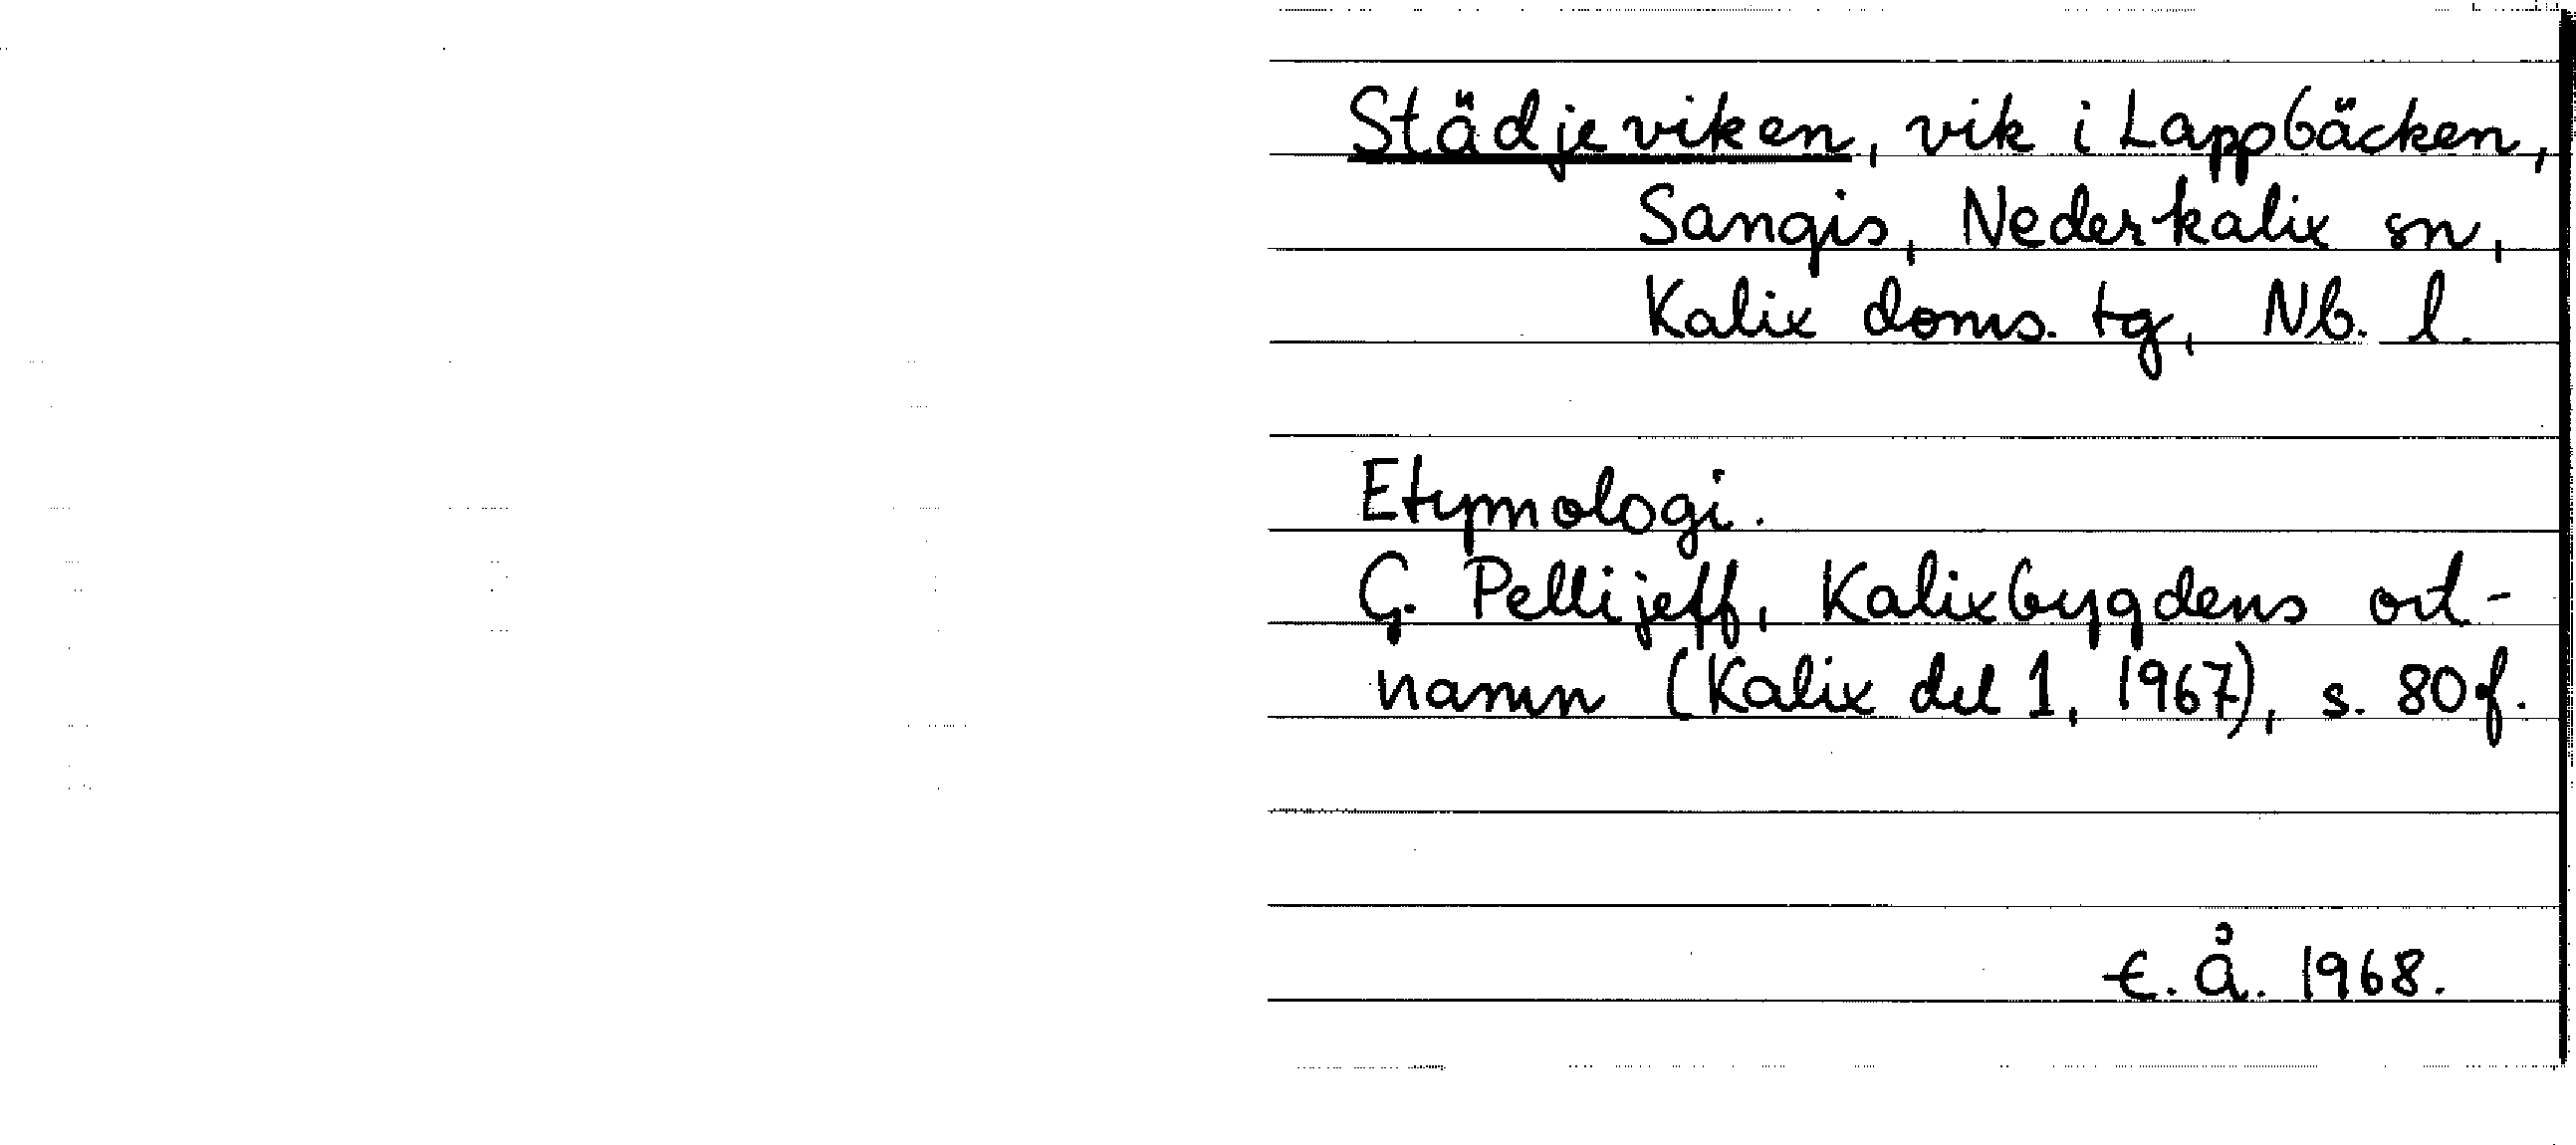 Städjeviken, vik i Lappbäcken,
Sangis, Nederkalix sn,
Kalix doms. tg, Nb. l.
Etymologi.
G. Pellijeff, Kalixbygdens ort-
namn (Kalix del 1, 1967), s. 80 f.
E. Å. 1968.